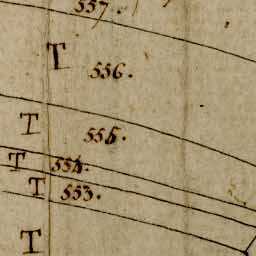 557.
T 556.
T 555.
T 554.
T 553.
T